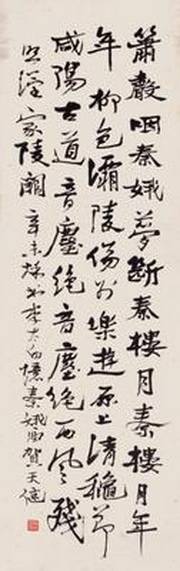 簫聲咽秦娥夢斷秦樓月秦樓月年
年柳色灞陵傷別樂遊原上清穐節
咸陽古道音塵絕音塵絕西風殘
照漢家陵闕辛未書李太白憶秦娥詞賀天健